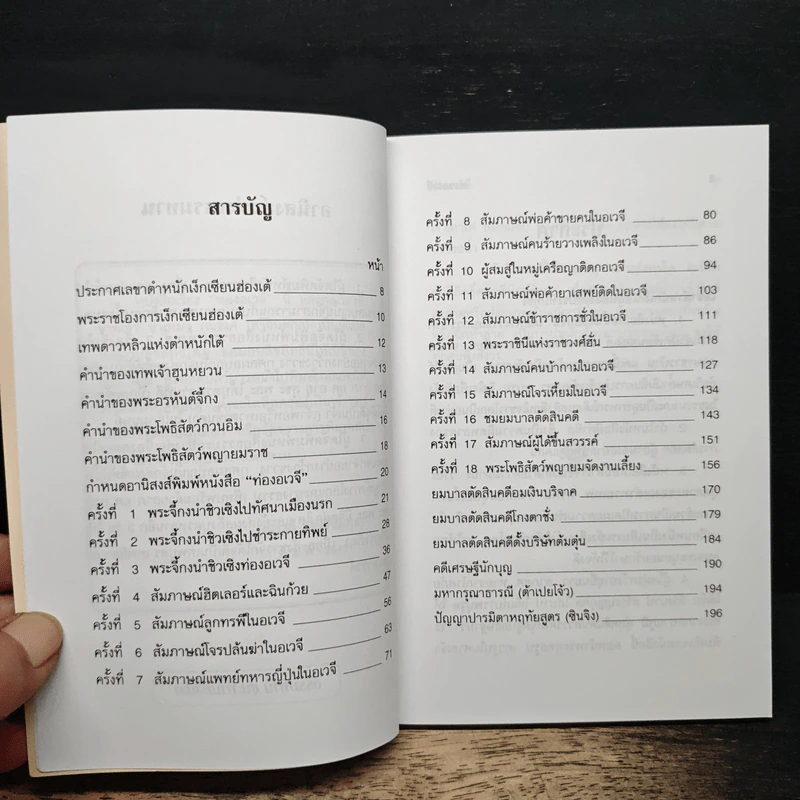 สารบัญ
หน้า
ประกาศเลขาตำหนักเง็กเซียนฮ่องเต้ 8
พระราชโองการเง็กเซียนฮ่องเต้ 10
เทพดาวหลิวแห่งตำหนักใต้ 12
คำนำของเทพเจ้าฮุนหยวน 13
คำนำของพระอรหันต์จี้กง 14
คำนำของพระโพธิสัตว์กวนอิม 16
คำนำของพระโพธิสัตว์พญายมราช 18
กำหนดอานิสงส์พิมพ์หนังสือ “ท่องอเวจี” 20
ครั้งที่ 1 พระจี้กงนำชิวเซิงไปทัศนาเมืองนรก 21
ครั้งที่ 2 พระจี้กงนำชิวเซิงไปชำระกายทิพย์ 28
ครั้งที่ 3 พระจี้กงนำชิวเซิงท่องอเวจี 36
ครั้งที่ 4 สัมภาษณ์ฮิตเลอร์และฉินก้วย 47
ครั้งที่ 5 สัมภาษณ์ลูกทรพีในอเวจี 56
ครั้งที่ 6 สัมภาษณ์โจรปล้นฆ่าในอเวจี 63
ครั้งที่ 7 สัมภาษณ์แพทย์ทหารญี่ปุ่นในอเวจี 71
ครั้งที่ 8 สัมภาษณ์พ่อค้าขายคนในอเวจี 80
ครั้งที่ 9 สัมภาษณ์คนร้ายวางเพลิงในอเวจี 86
ครั้งที่ 10 ผู้สมสู่ในหมู่เครือญาติตกอเวจี 94
ครั้งที่ 11 สัมภาษณ์พ่อค้ายาเสพย์ติดในอเวจี 103
ครั้งที่ 12 สัมภาษณ์ข้าราชการชั่วในอเวจี 111
ครั้งที่ 13 พระราชินีแห่งราชวงศ์ฮั่น 118
ครั้งที่ 14 สัมภาษณ์คนบ้ากามในอเวจี 127
ครั้งที่ 15 สัมภาษณ์โจรเหี้ยมในอเวจี 134
ครั้งที่ 16 ชมยมบาลตัดสินคดี 143
ครั้งที่ 17 สัมภาษณ์ผู้ได้ขึ้นสวรรค์ 151
ครั้งที่ 18 พระโพธิสัตว์พญายมจัดงานเลี้ยง 156
ยมบาลตัดสินคดีอมเงินบริจาค 170
ยมบาลตัดสินคดีโกงตาชั่ง 179
ยมบาลตัดสินคดีตั้งบริษัทต้มตุ๋น 184
คดีเศรษฐีนักบุญ 190
มหากรุณาธารณี (ต้าเปยโจ้ว) 194
ปัญญาปารมิตาหฤทัยสูตร (ซินจิง) 196